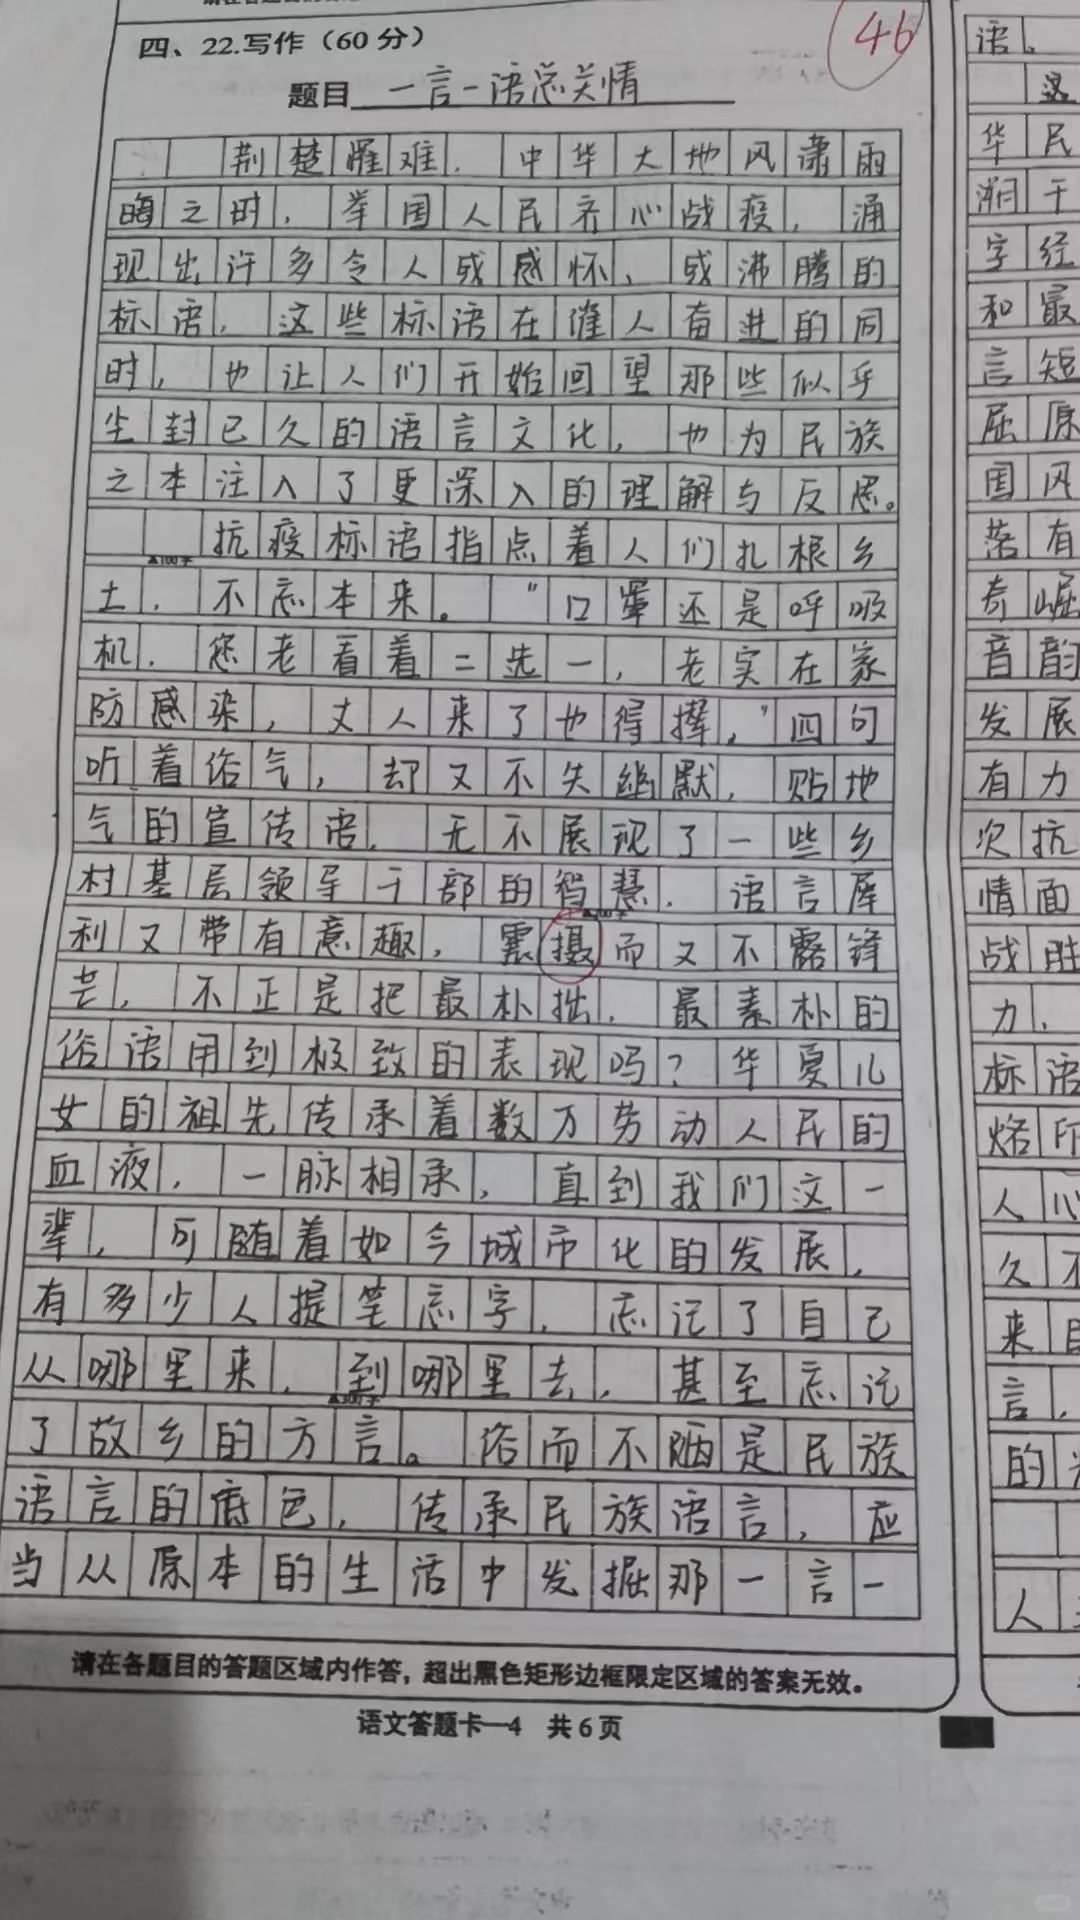 四、22.写作（60分）
46
题目 一言一语总关情
荆楚罹难，中华大地风潇雨
晦之时，举国人民齐心战疫，涌
现出许多令人或感怀、或沸腾的
标语，这些标语在催人奋进的同
时，也让人们开始回望那些似乎
尘封已久的语言文化，也为民族
之本注入了更深入的理解与反思。
抗疫标语指点着人们扎根乡
土，不忘本来。"口罩还是呼吸
机，您老看着二选一，老实在家
防感染，丈人来了也得撵，"四句
听着俗气，却又不失幽默，贴地
气的宣传语，无不展现了一些乡
村基层领导干部的智慧，语言犀
利又带有意趣，震摄而又不露锋
芒，不正是把最朴拙，最素朴的
俗语用到极致的表现吗？华夏儿
女的祖先传承着数万劳动人民的
血液，一脉相承，直到我们这一
辈，可随着如今城市化的发展，
有多少人提笔忘字，忘记了自己
从哪里来，到哪里去，甚至忘记
了故乡的方言。俗而不陋是民族
语言的底色，传承民族语言，应
当从原本的生活中发掘那一言一
请在各题目的答题区域内作答，超出黑色矩形边框限定区域的答案无效。
语文答题卡—4 共6页
语。
这
华民
溯于
字经
和最
言短
屈原
国风
落有
奇崛
音韵
发展
有力
次抗
情面
战胜
力，
标语
烙印
人心
久不
来自
言，
的
人